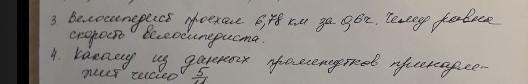 3. Велосипедист проехал 6,78 км за 0,6 ч. Чему равна
скорость велосипедиста.
4. Какому из данных промежутков принадле-
жит число 5/11